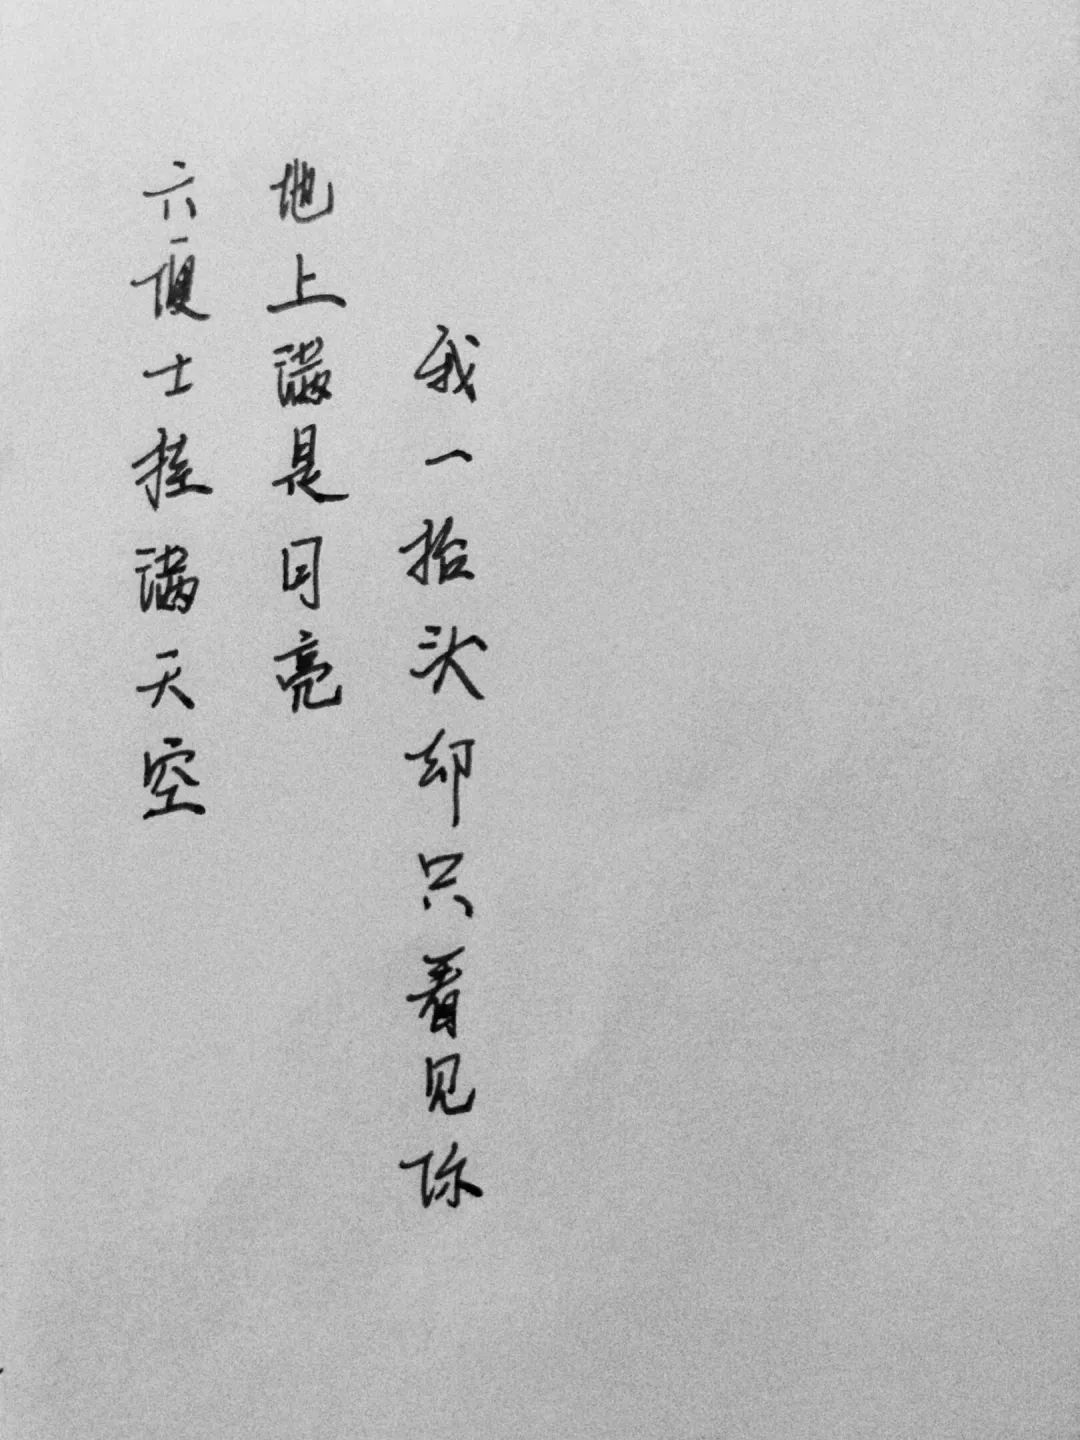 六便士挂满天空
地上满是月亮
我一抬头却只看见你